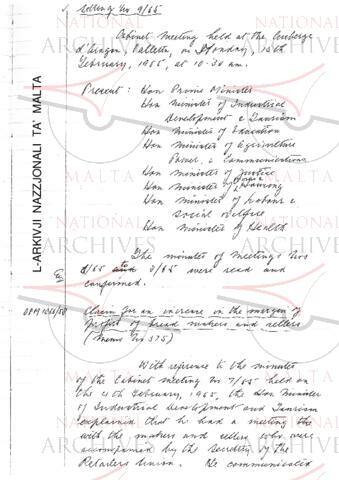 Meeting No 9/65
Cabinet Meeting held at the Auberge
d'Aragon, Valletta, on Monday, 15th
February, 1965, at 10.30 am.
Present : Hon Prime Minister
Hon Minister of Industrial
Development & Tourism
Hon Minister of Education
Hon Minister of Agriculture
Power & Communications
Hon Minister of Justice
Hon Minister of Works & Housing
Hon Minister of Labour &
Social Welfare
Hon Minister of Health
The minutes of Meetings Nos
and 8/65 were read and
confirmed.
Claim for an increase in the margin of
Profit of bread makers and sellers
(Memo No 375)
With reference to the minutes
of the Cabinet meeting No 7/65 held on
the 4th February, 1965, the Hon Minister
of Industrial Development and Tourism
explained that he had a meeting
with the makers and sellers who were
accompanied by the secretary of the
Retailers Union. He communicated
L-ARKIVJI NAZZJONALI TA' MALTA
NATIONAL
ARCHIVES
MALTA